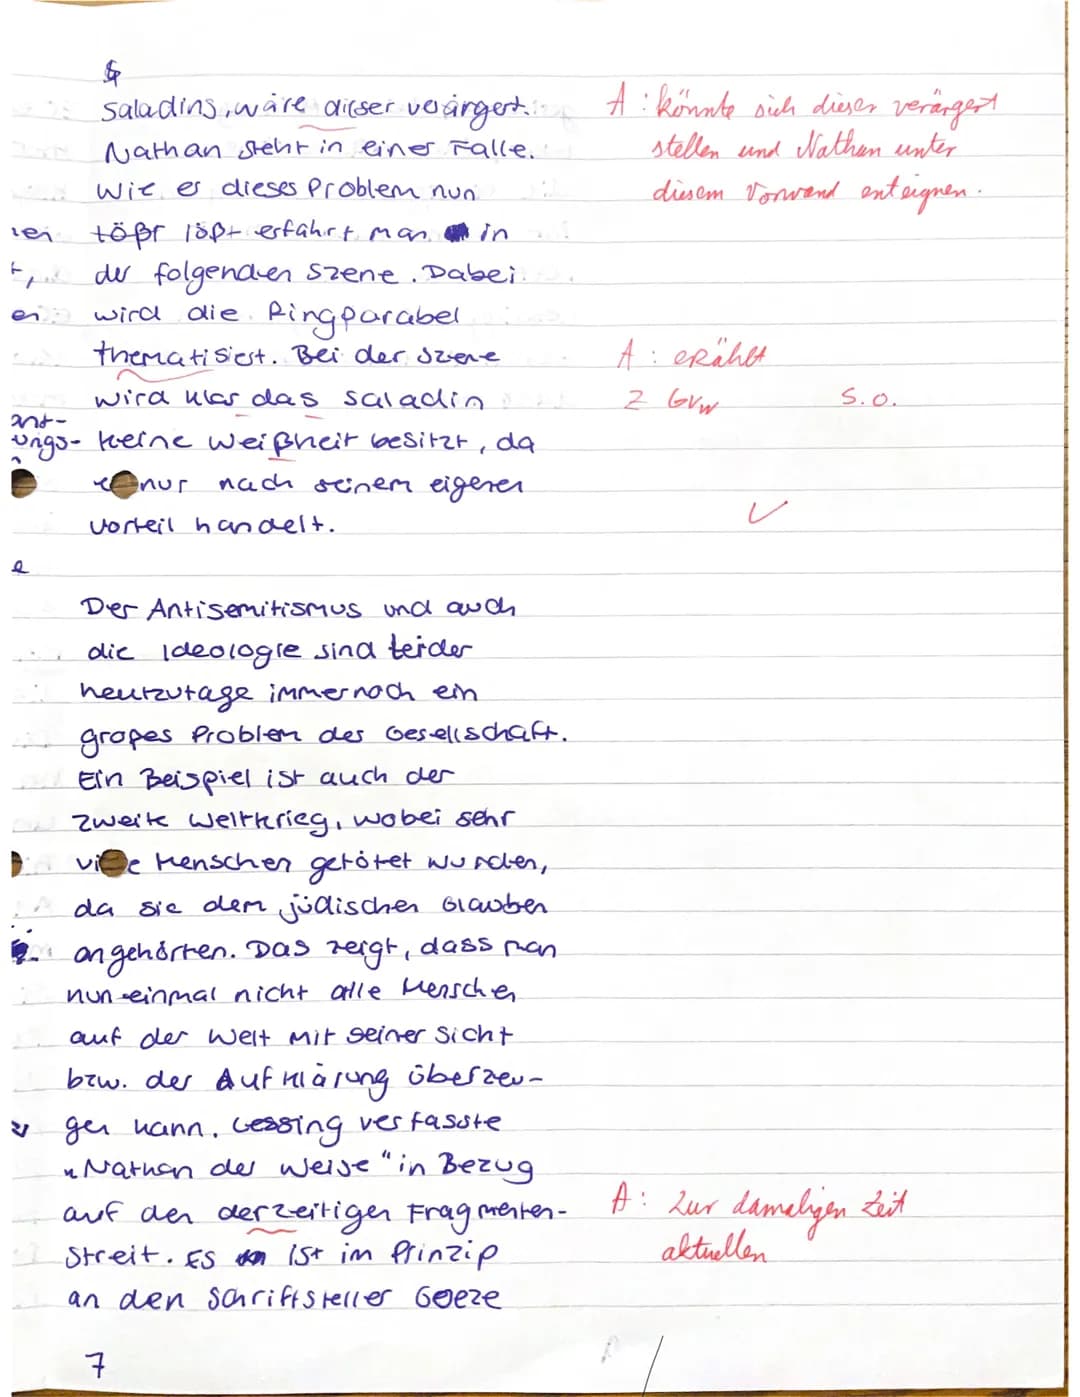 Saladins, wäre dieser verärgert.
A: könnte sich dieser verärgert
Nathan steht in einer Falle.
stellen und Nathan unter
Wie er dieses Problem nun
diesem Vorwand enteignen.
lößt erfährt man in
der folgenden Szene. Dabei
wird die Ringparabel
thematisiest. Bei der Szene
A: erählt
wird klar das Saladin
Z Gr/w s.o.
keine Weißheit besitzt, da
er nur nach seinem eigenen
Vorteil handelt.
Der Antisemitismus und auch
die Ideologie sind leider
heutzutage immernoch ein
großes Problem der Gesellschaft.
Ein Beispiel ist auch der
zweite Weltkrieg, wobei sehr
viele Menschen getötet wurden,
da sie dem jüdischen Glauben
angehörten. Das zeigt, dass man
nun einmal nicht alle Menschen
auf der Welt mit seiner Sicht
bzw. der Aufklärung überzeu-
gen kann. Lessing verfasste
„Nathan der Weise" in Bezug
auf den derzeitigen Fragmenten-
A: Zur damaligen Zeit
Streit. Es ist im Prinzip
aktuellen
an den Schriftsteller Goeze
7